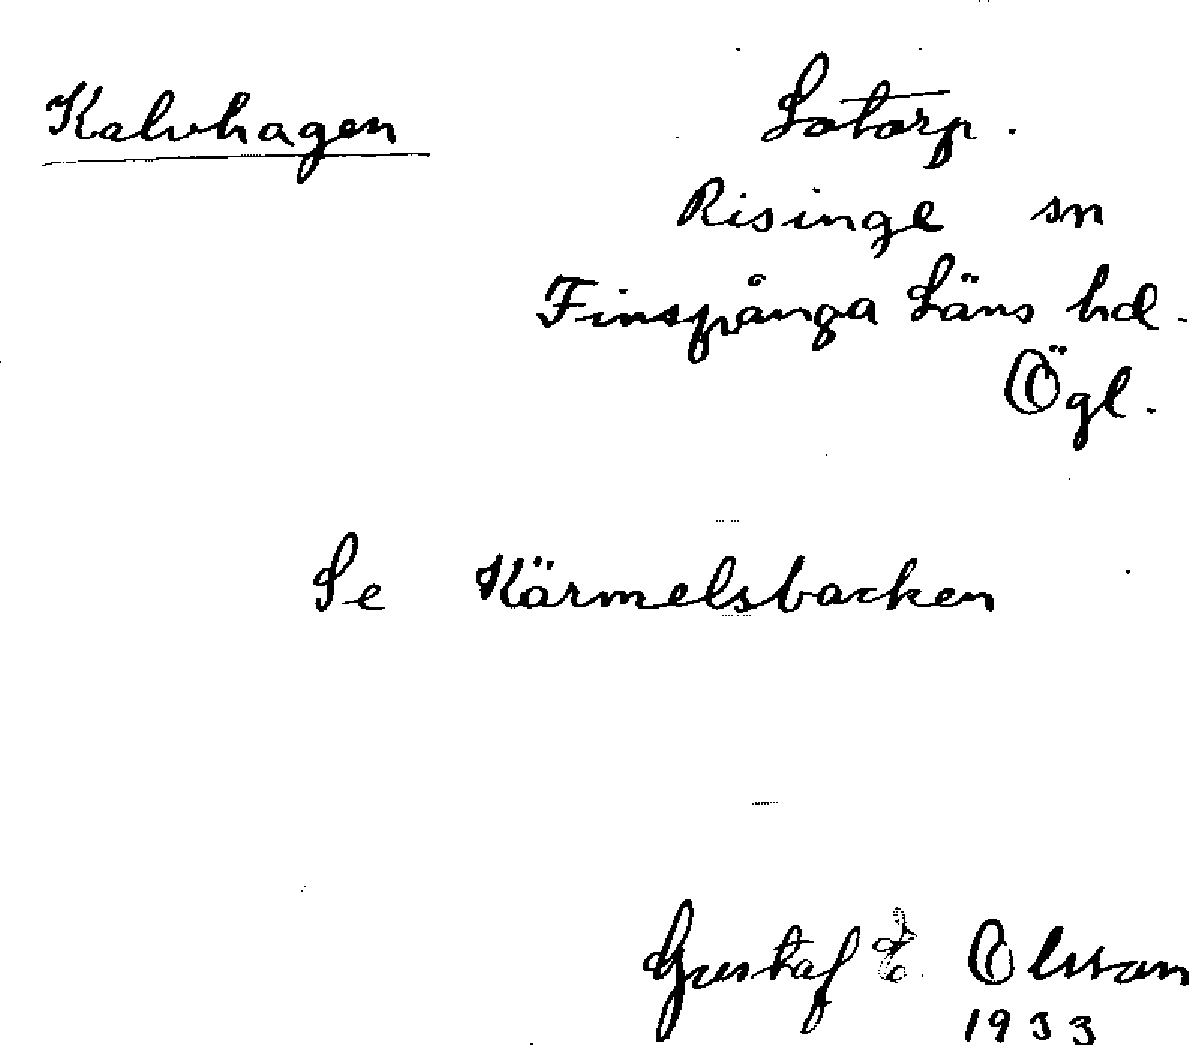 Kalvhagen
Lotorp.
Risinge sn
Finspånga Läns hd.
Ögl.
Se Kärmelsbacken
Gustaf E Olsson
1933